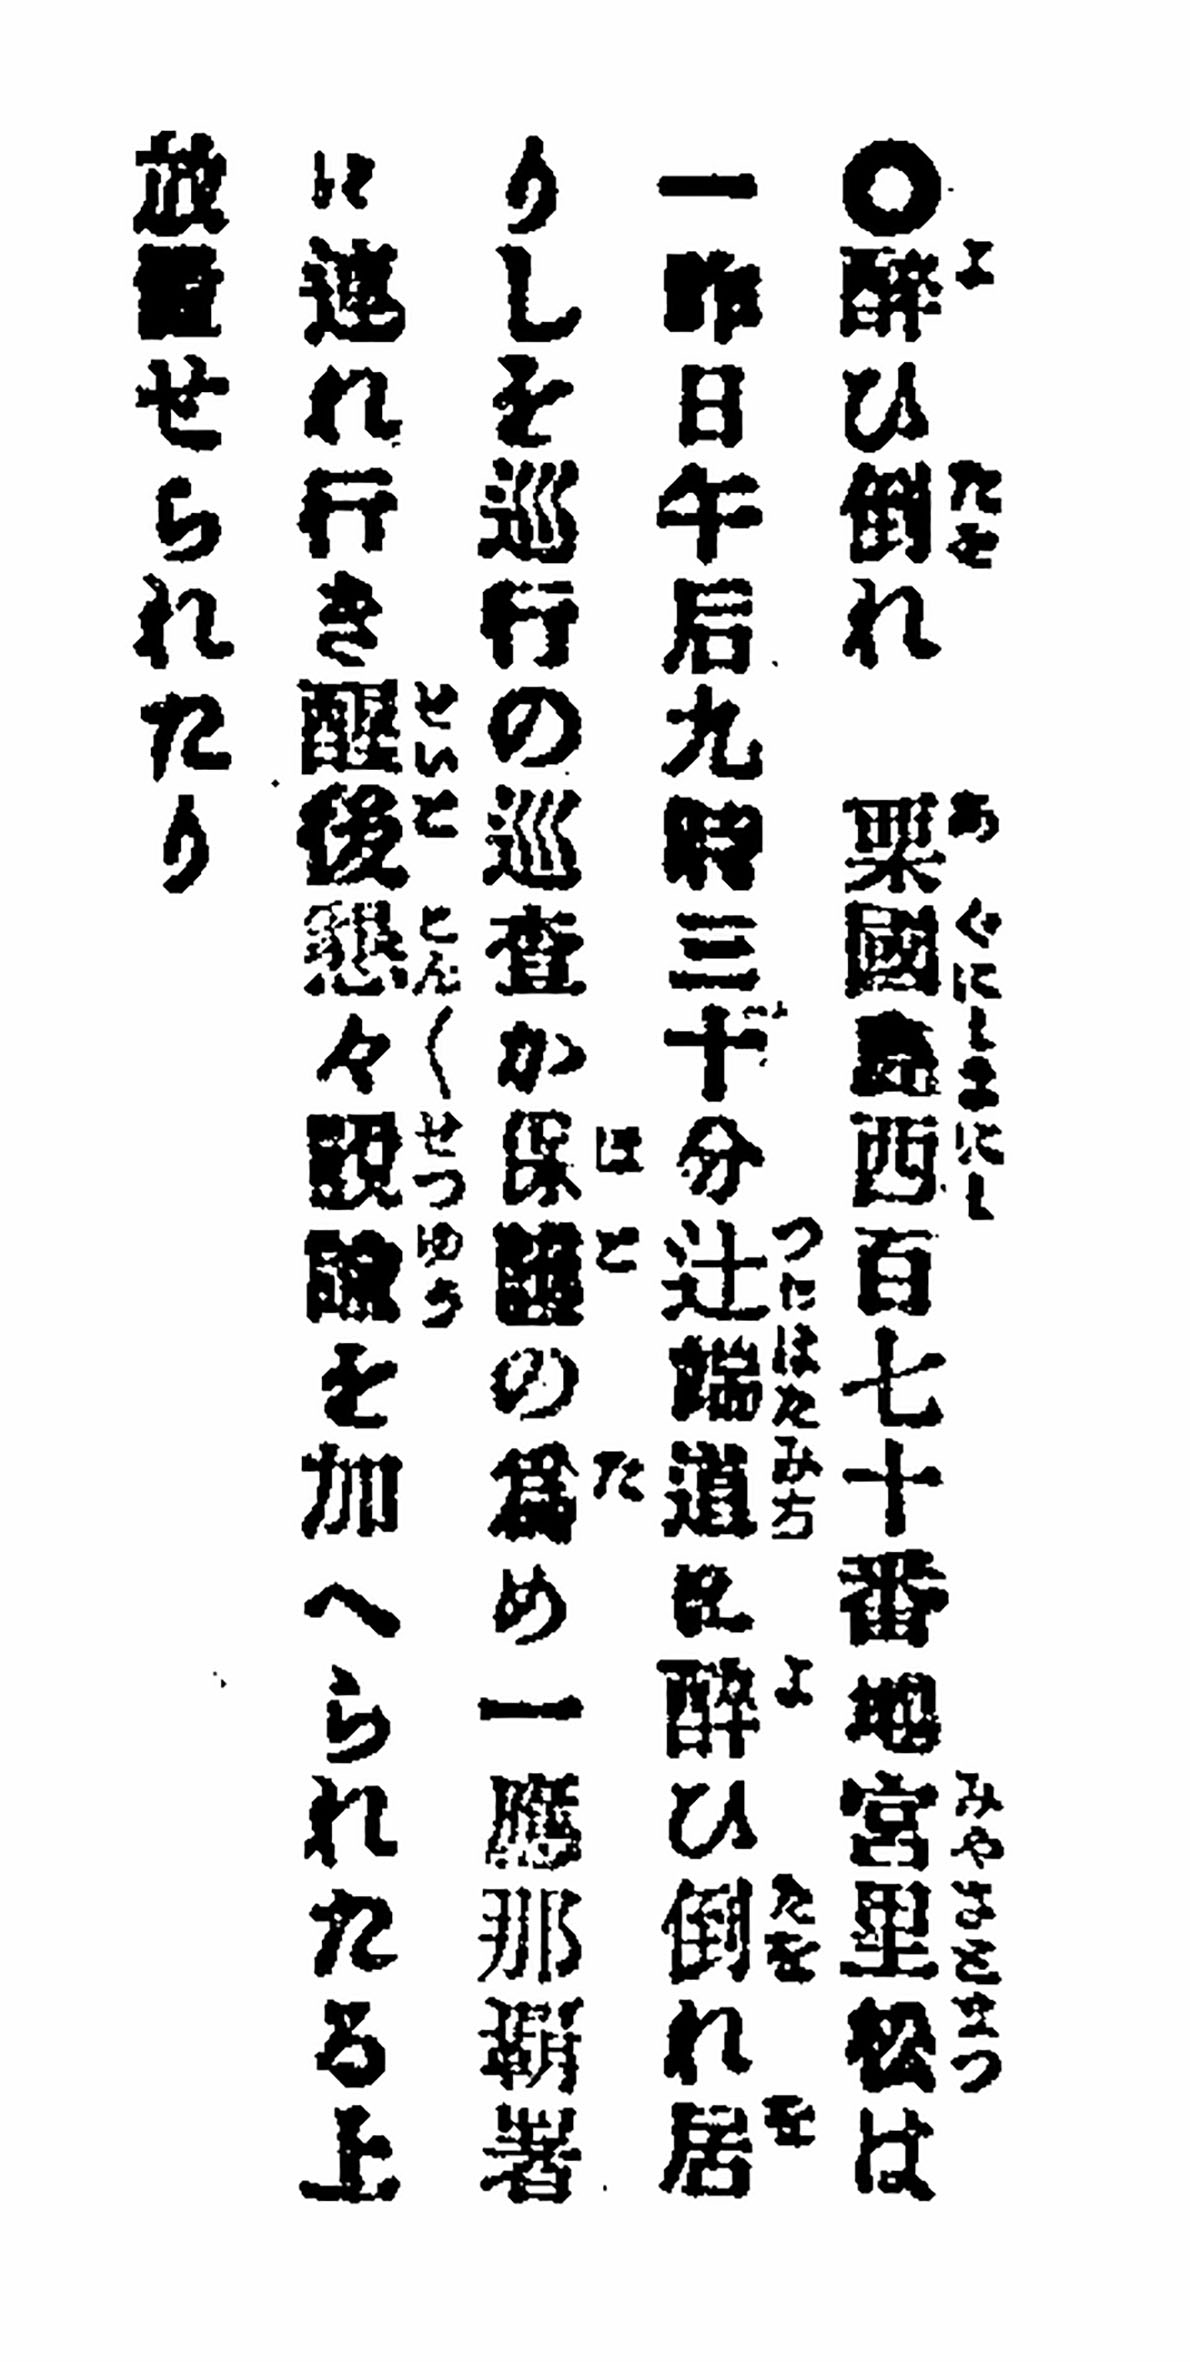 〇酔ひ倒れ　粟國島西百七十番地宮里松は
一昨日午后九時三十分辻端道に酔ひ倒れ居
りしを巡行の巡査か保護の爲め一應那覇署
に連れ行き醒後懇々説諭を加へられたる上
放置せられたり